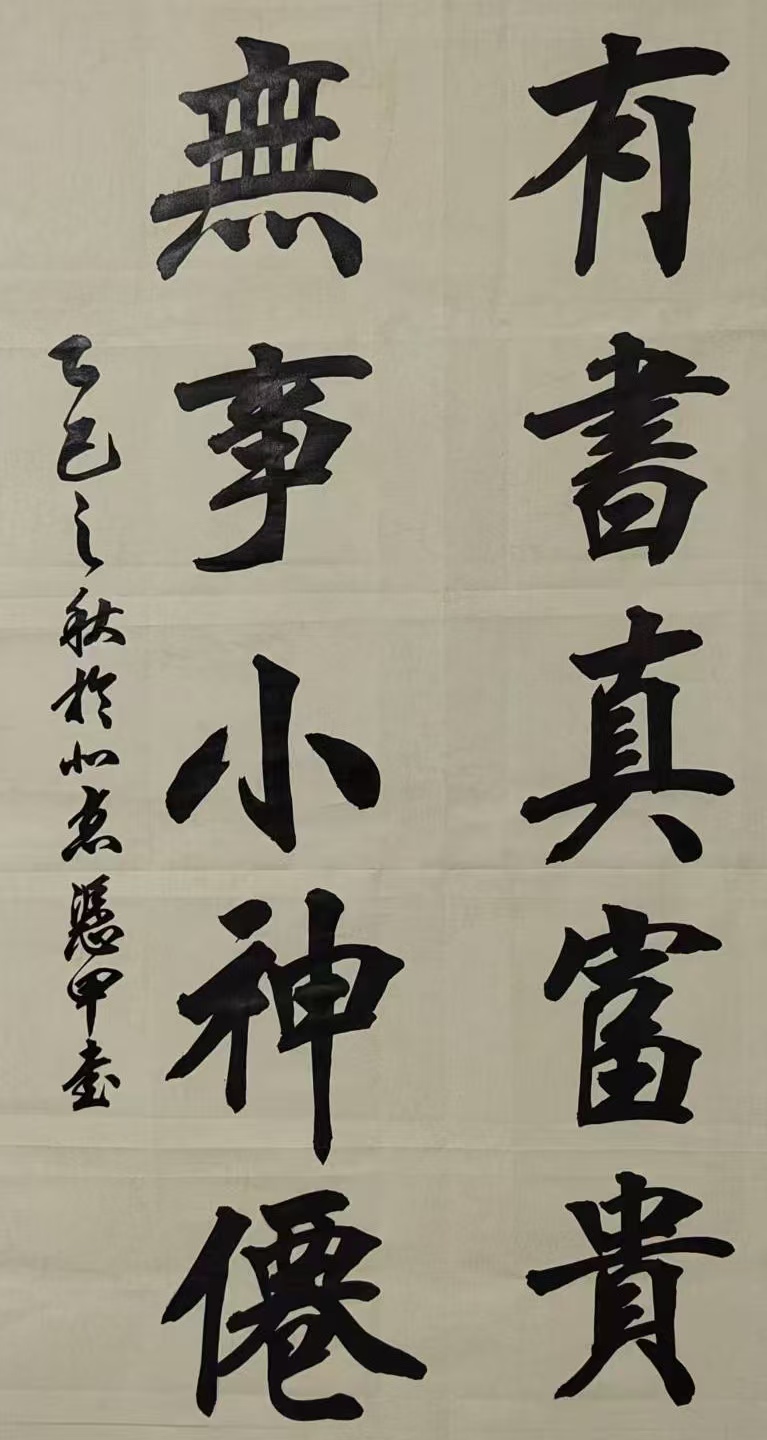 有書真富貴
無事小神僊
乙巳之秋於北京懋甲書